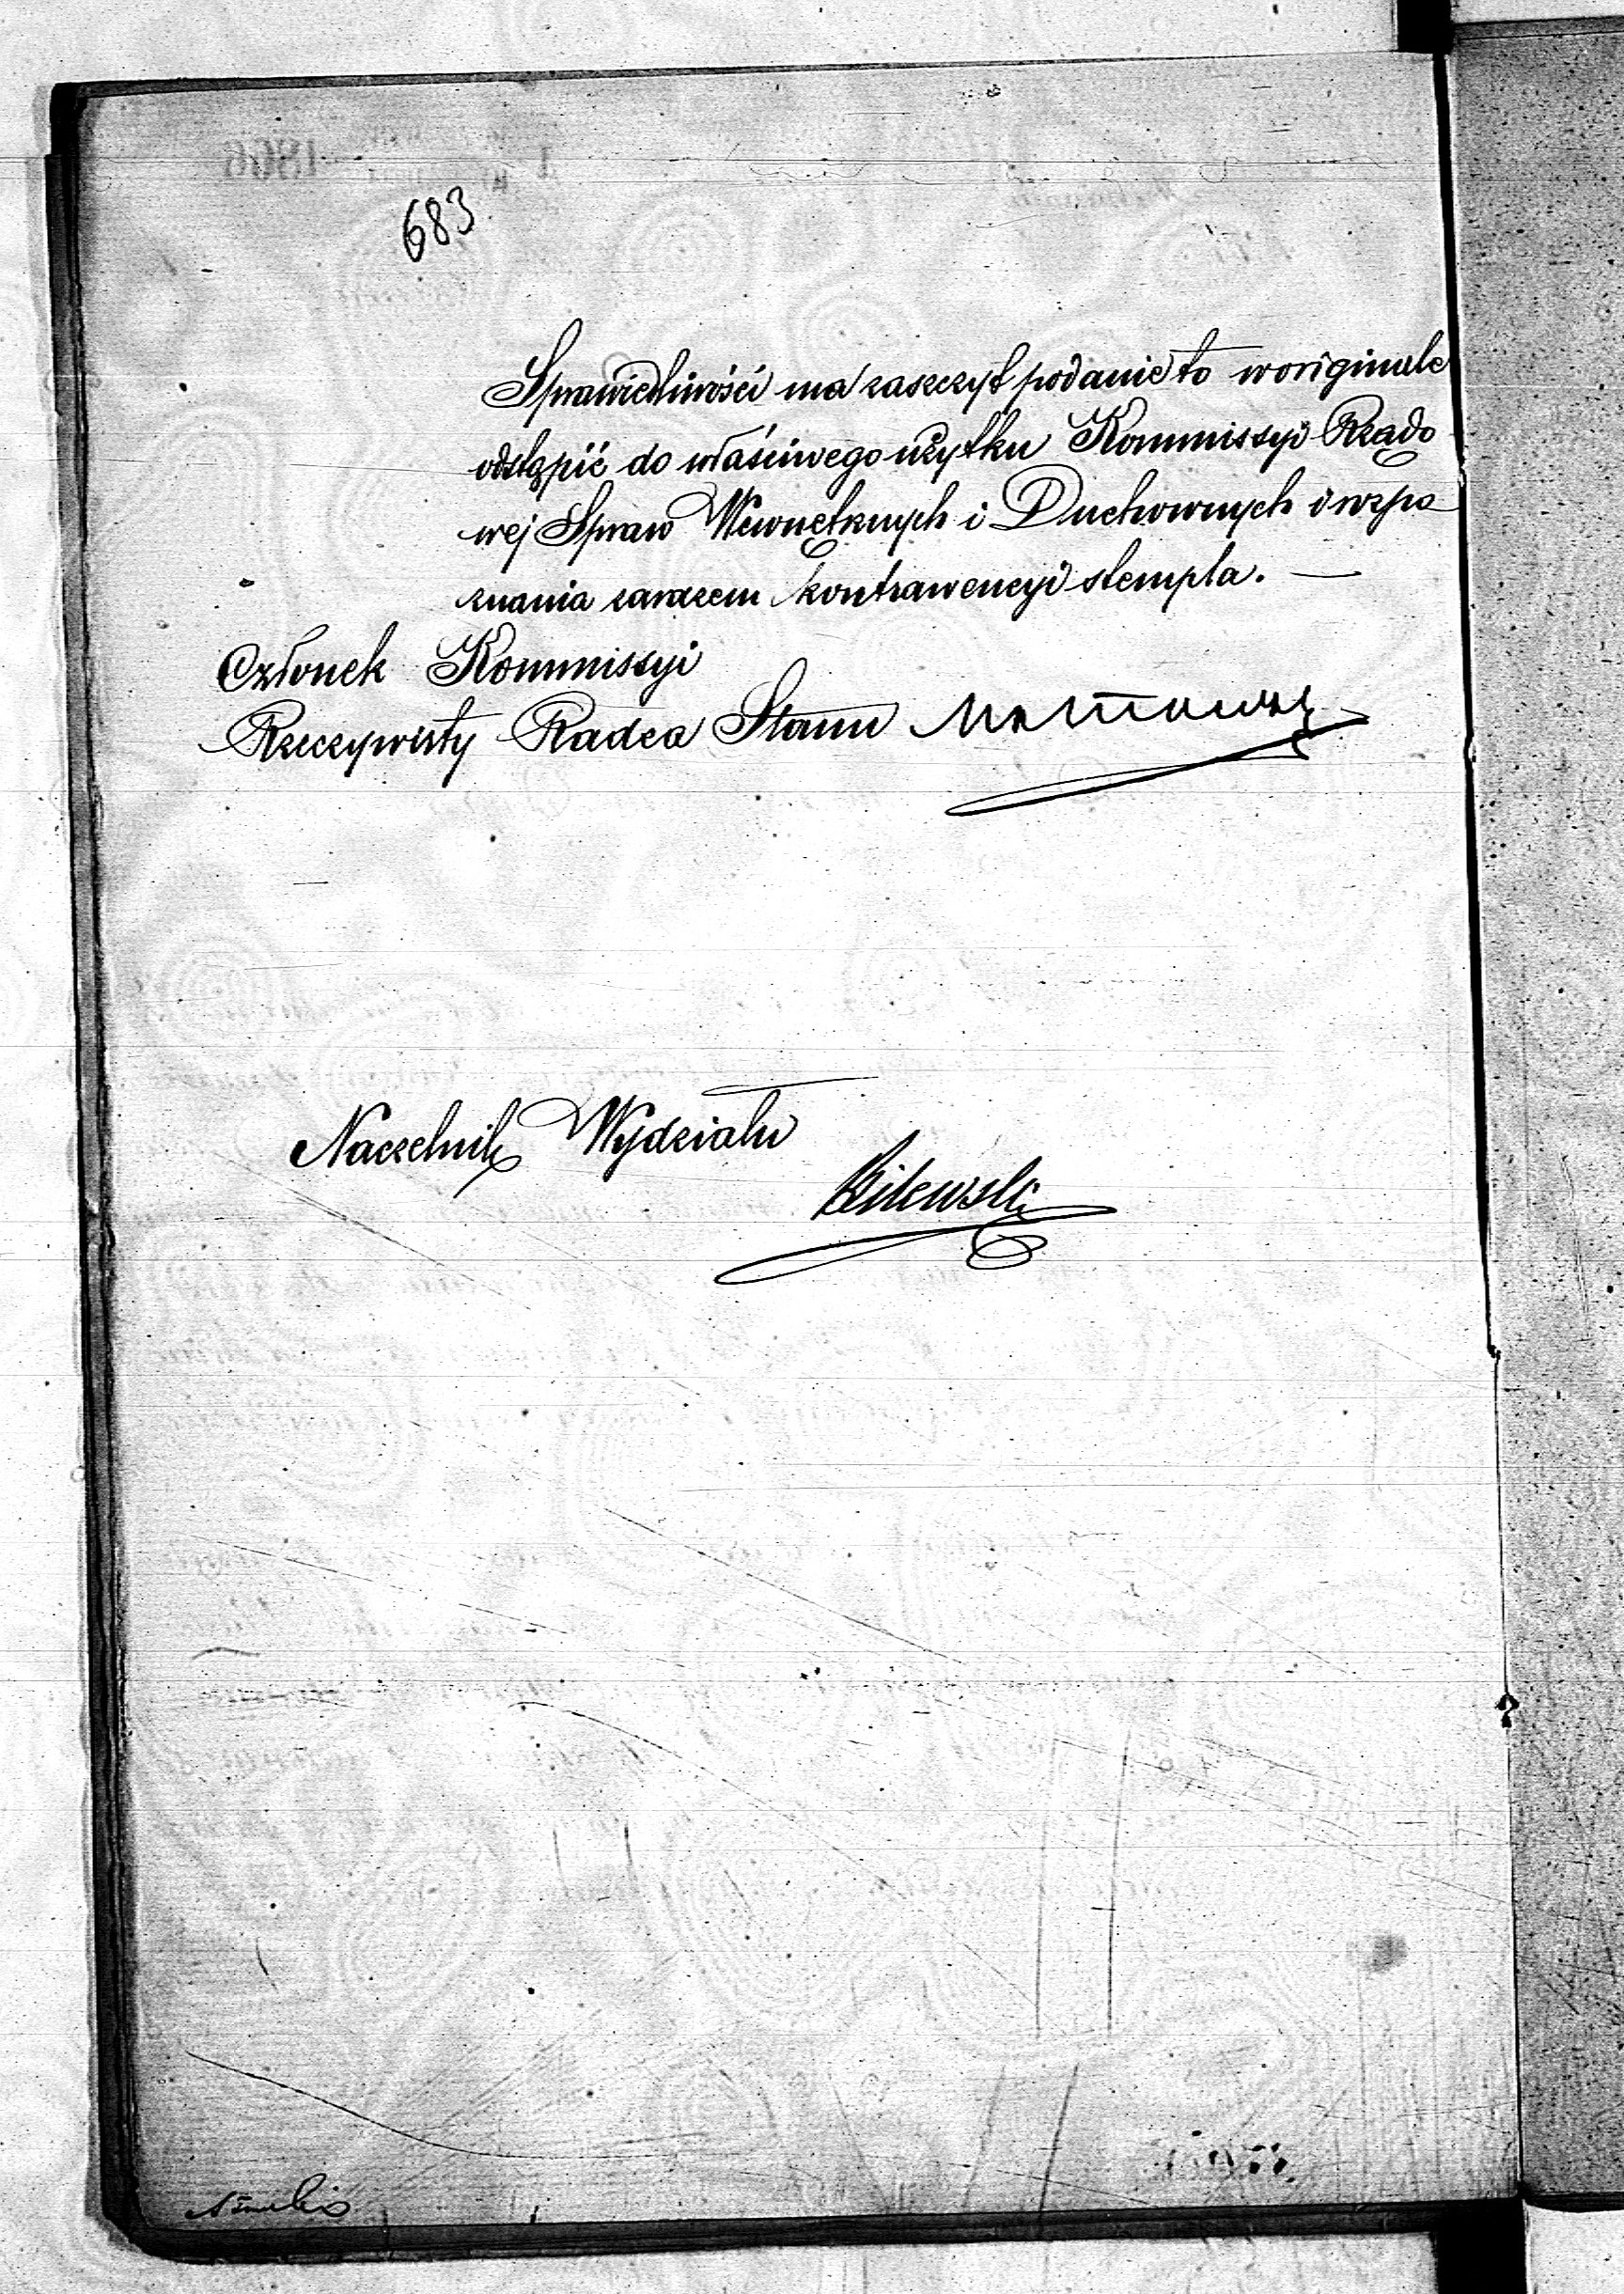 683
Sprawiedliwości ma zaszczyt podanie to w originale
odstąpić do właściwego użytku Kommissyi Rządo
wej Spraw Wewnętrznych i Duchownych i rozpo
znania zarazem kontrawencyi stempla. —
Członek Kommissyi
Rzeczywisty Radca Stanu
Naczelnik Wydziału